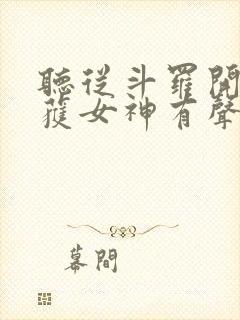 聽從斗羅開
獲女神有聲
幕間